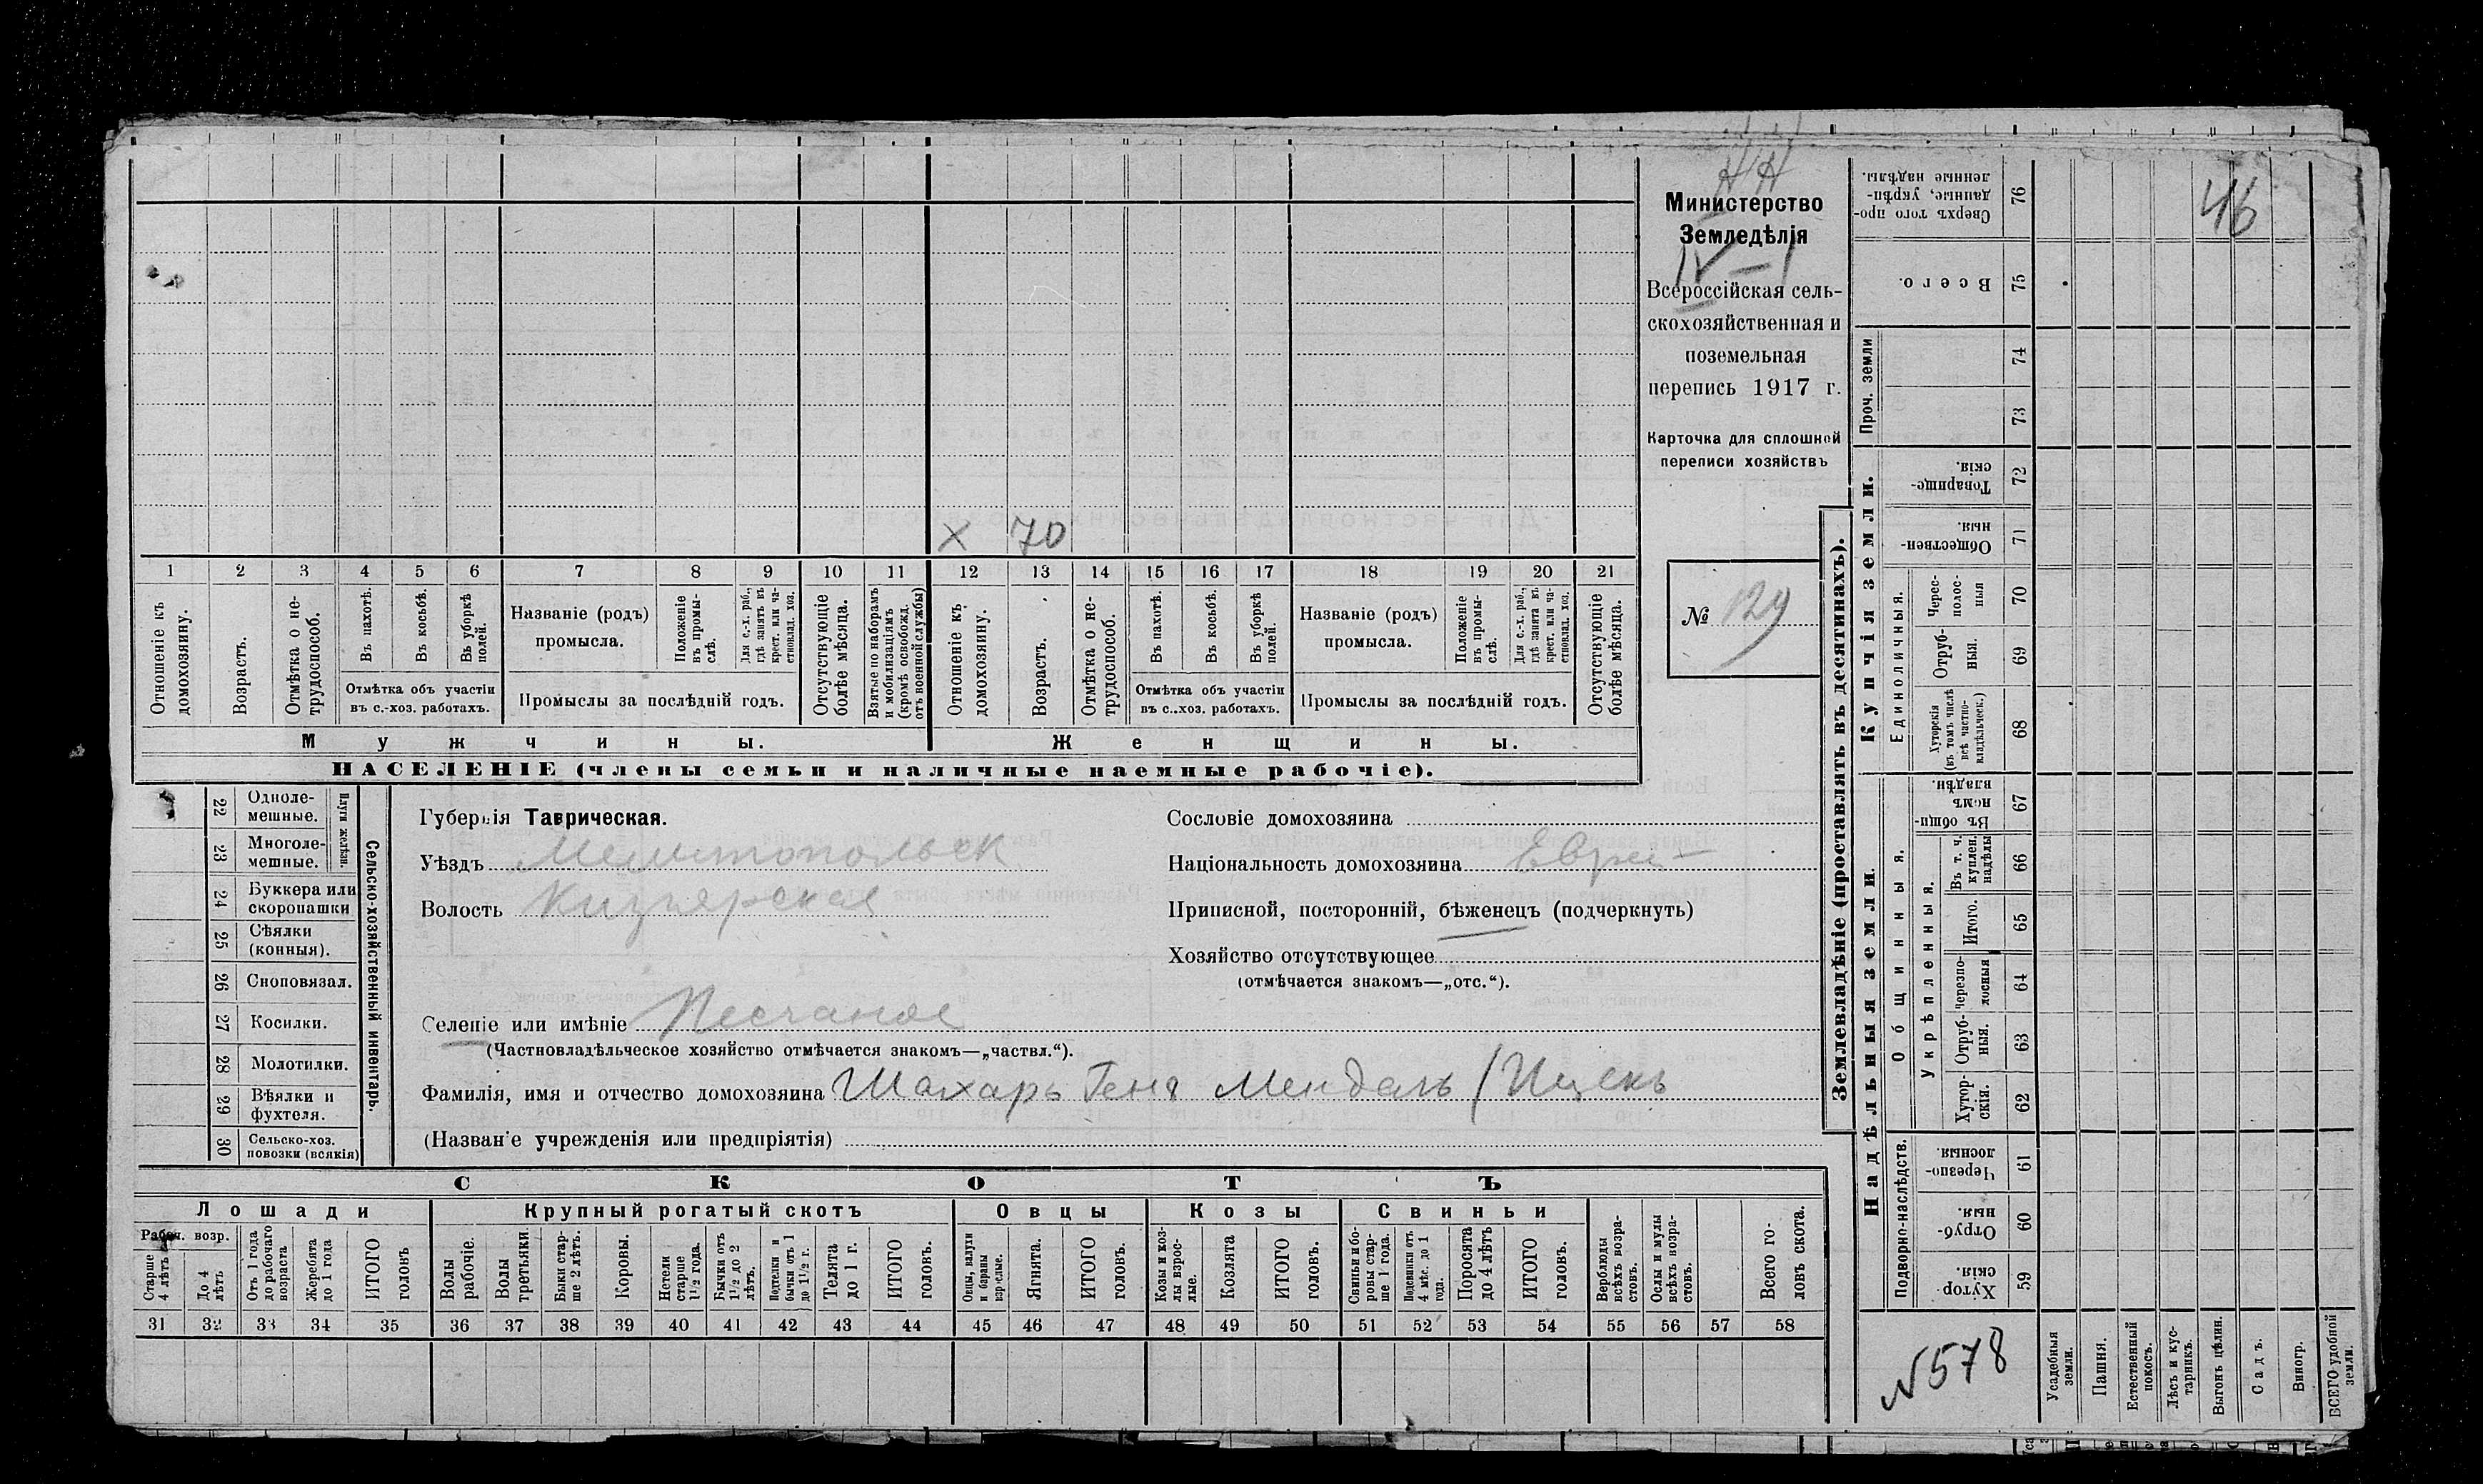 НН
Министерство
Земледѣлія
IV – 1
Всероссійская сель-
скохозяйственная и
поземельная
перепись 1917 г.
Карточка для сплошной
переписи хозяйствъ
№ 129
х 70
1 2 3 4 5 6 7 8 9 10 11 12 13 14 15 16 17 18 19 20 21
Отношеніе къ домохозяину.
Возрастъ.
Отмѣтка о не-трудоспособ.
Въ пахотѣ.
Въ косьбѣ.
Въ уборкѣ полей.
Отмѣтка объ участіи
въ с.-хоз. работахъ.
Названіе (родъ)
промысла.
Положеніе въ промы-слѣ.
Для с.-х. раб., гдѣ занятъ въ крест. или ча-стновлад. хоз.
Промыслы за послѣдній годъ.
Отсутствующіе болѣе мѣсяца.
Взятые по наборамъ и мобилизаціямъ (кромѣ освобожд. отъ военной службы)
Отношеніе къ домохозяину.
Возрастъ.
Отмѣтка о не-трудоспособ.
Въ пахотѣ.
Въ косьбѣ.
Въ уборкѣ полей.
Отмѣтка объ участіи
въ с..хоз. работахъ.
Названіе (родъ)
промысла.
Положеніе въ промы-слѣ.
Для с.-х. раб., гдѣ занята въ крест. или ча-стновлад. хоз.
Промыслы за послѣдній годъ.
Отсутствующіе болѣе мѣсяца.
Мужчины.
Женщины.
НАСЕЛЕНІЕ (члены семьи и наличные наемные рабочіе).
22 Одноле-мешные.
23 Многоле-мешные.
Плуги желѣзн.
24 Буккера или скоропашки
25 Сѣялки (конныя).
26 Сноповязал.
27 Косилки.
28 Молотилки.
29 Вѣялки и фухтеля.
30 Сельско-хоз. повозки (всякія)
Сельско-хозяйственный инвентарь.
Губернія Таврическая.
Уѣздъ Мелитопольск
Волость Кизиярская
Селеніе или имѣніе Песчаное
(Частновладѣльческое хозяйство отмѣчается знакомъ—„частвл.“).
Фамилія, имя и отчество домохозяина Шахаръ Геня Мендель / Ицекъ
(Названіе учрежденія или предпріятія)
Сословіе домохозяина
Національность домохозяина Евреи
Приписной, посторонній, бѣженецъ (подчеркнуть)
Хозяйство отсутствующее
(отмѣчается знакомъ—„отс.“).
СКОТЪ
Лошади
Крупный рогатый скотъ
Овцы
Козы
Свиньи
Рабоч. возр.
Старше 4 лѣтъ
До 4 лѣтъ
Отъ 1 года до рабочаго возраста
Жеребята до 1 года
ИТОГО головъ
Волы рабочіе.
Волы третьяки.
Быки стар-ше 2 лѣтъ.
Коровы.
Нетели старше 1½ года.
Бычки отъ 1½ до 2 лѣтъ.
Подтелки и бычки отъ 1 до 1½ г.
Телята до 1 г.
ИТОГО головъ.
Овцы, валухи и бараны взрослые.
Ягнята.
ИТОГО головъ.
Козы и коз-лы взрос-лые.
Козлята
ИТОГО головъ.
Свиньи и бо-ровы стар-ше 1 года.
Подсвинки отъ 4 мѣс. до 1 года.
Поросята до 4 лѣтъ
ИТОГО головъ.
Верблюды всѣхъ возра-стовъ.
Ослы и мулы всѣхъ возра-стовъ.
Всего го-ловъ скота.
31 32 33 34 35 36 37 38 39 40 41 42 43 44 45 46 47 48 49 50 51 52 53 54 55 56 57 58
Землевладѣніе (проставлять въ десятинахъ).
46
Сверхъ того про-данные, укрѣп-ленные надѣлы. 76
Всего. 75
Проч. земли
74
73
Купчія земли.
Товарище-скія. 72
Обществен-ныя. 71
Единоличныя.
Черес-полос-ныя 70
Отруб-ныя. 69
Хуторскія (въ томъ числѣ всѣ частно-владѣльческ.) 68
Надѣльныя земли.
Общинныя.
Въ общи-номъ владѣн. 67
Укрѣпленныя.
Въ т. ч. куплен. надѣлы 66
Итого. 65
Черезпо-лосныя 64
Отруб-ныя. 63
Хутор-скія. 62
Подворно-наслѣдств.
Черезпо-лосныя. 61
Отруб-ныя. 60
Хутор-скія. 59
N 578
Усадебныя земли.
Пашня.
Естественный покосъ.
Лѣсъ и кус-тарникъ.
Выгонъ цѣлин.
Садъ.
Виногр.
ВСЕГО удобной земли.